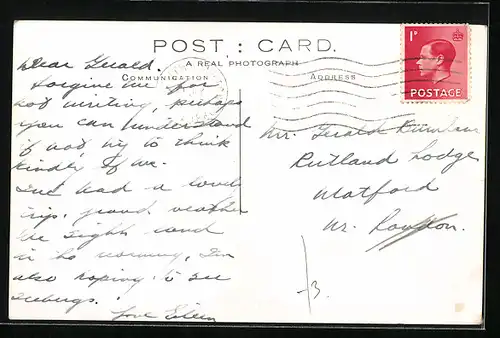 POST : CARD.
A REAL PHOTOGRAPH
COMMUNICATION
ADDRESS
1D
POSTAGE
Dear Gerald.
Forgive me for
not writing, perhaps
you can understand
if not try to think
kindly of me.
I've had a lovely
trip, grand weather
the sights
in the morning, I'm
also hoping to see
icebergs.
Love Eileen
Mr. Gerald
Rutland Lodge
Watford
Nr. London.